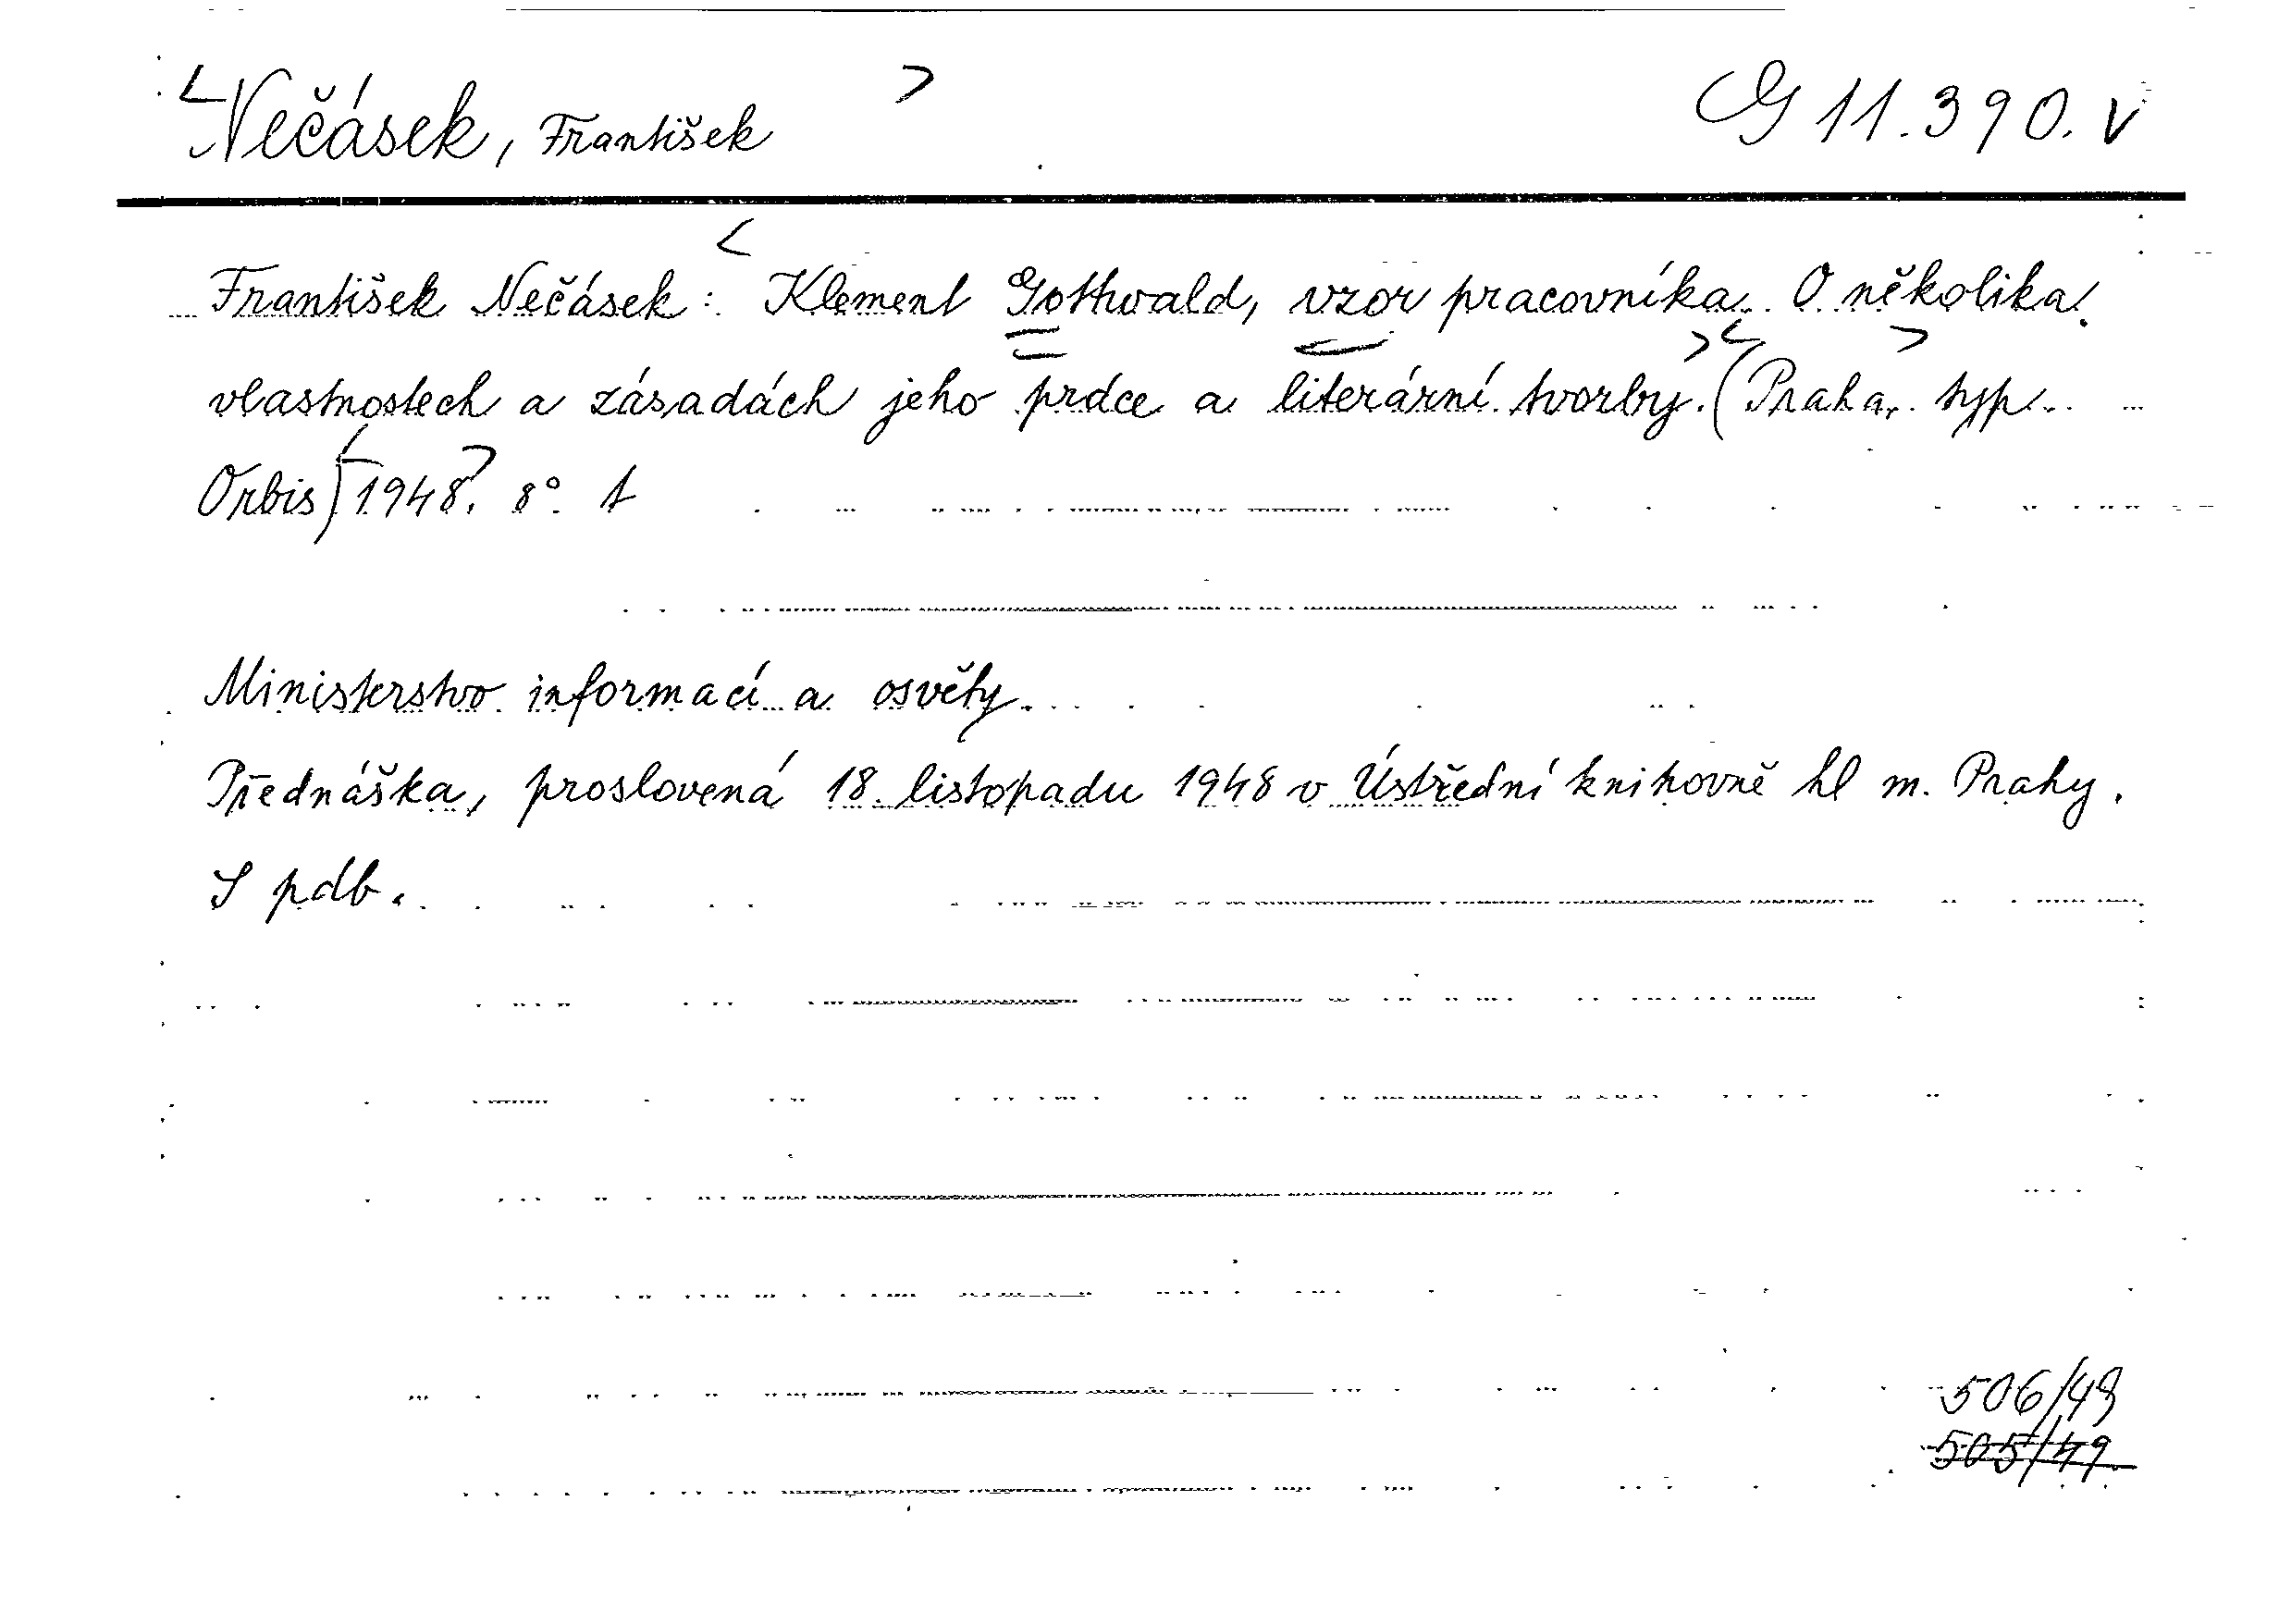 <Nečásek, František> G 11.390. V
František Nečásek: <Klement Gottwald, vzor pracovníka. O několika
vlastnostech a zásadách jeho práce a literární tvorby.> <(Praha, typ.>
Orbis) <1948>. 8°.
Ministerstvo informací a osvěty.
Přednáška, proslovená 18. listopadu 1948 v Ústřední knihovně hl m. Prahy.
S pdb.
506/49
505/49